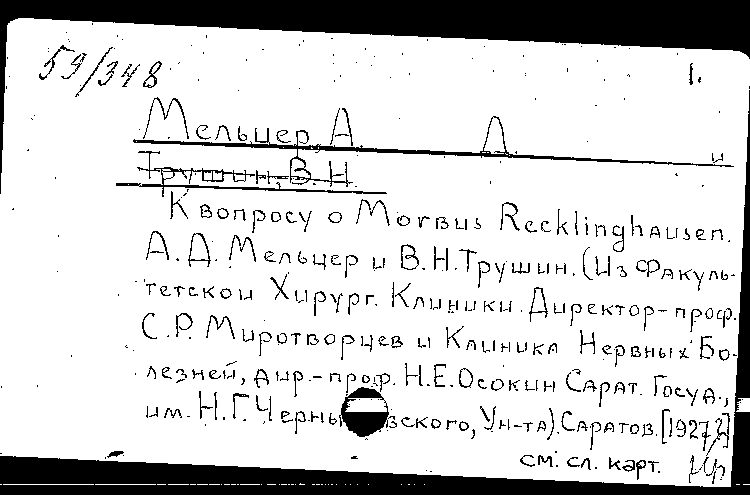 59/348 1.
Мельцер, А. Д. и
Трушин, В. Н.
К вопросу о Morbus Recklinghausen.
А. Д. Мельцер и В. Н. Трушин. (Из Факуль-
тетской Хирург. Клиники. Директор- проф.
С. Р. Миротворцев и Клиника Нервных Бо-
лезней, дир.- проф. Н. Е. Осокин Сарат. Госуд.,
им. Н. Г. Черны вского, Ун-та). Саратов. [1927]
см. сл. карт.